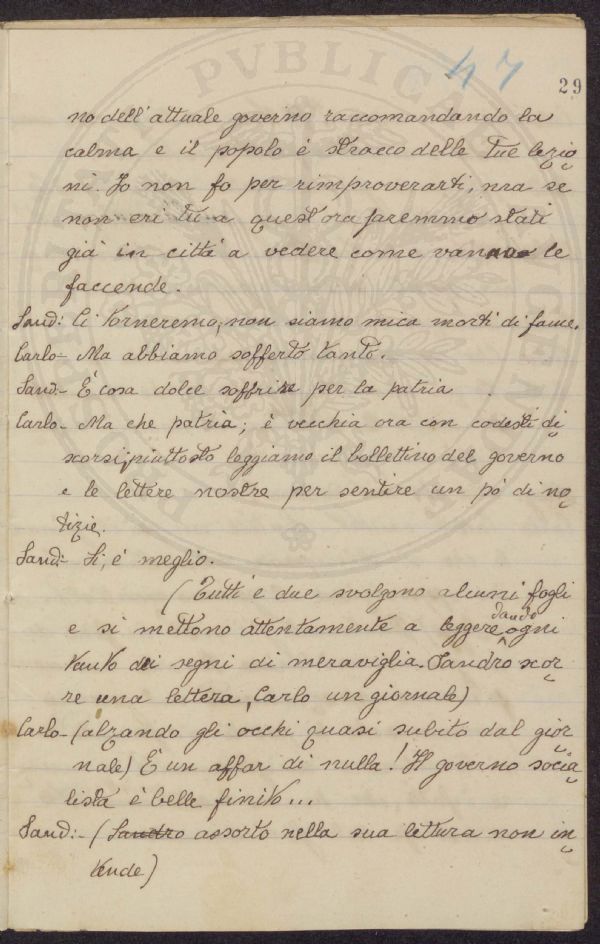 47
29
no dell'attuale governo raccomandando la
calma e il popolo è stracco delle Tue lezio
ni. Io non fo per rimproverarti, ma se
non eri tu a quest'ora saremmo stati
già in città a vedere come vanno le
faccende.
Sand: Ci torneremo, non siamo mica morti di fame.
Carlo - Ma abbiamo sofferto tanto.
Sand - È cosa dolce soffrire per la patria
Carlo - Ma che patria; è vecchia ora con codesti di
scorsi, piuttosto leggiamo il bollettino del governo
e le lettere nostre per sentire un pò di no
tizie.
Sand - Si, è meglio.
(Tutti e due svolgono alcuni fogli
e si mettono attentamente a leggere dando ogni
tanto dei segni di meraviglia. Sandro scor
re una lettera, Carlo un giornale)
Carlo - (alzando gli occhi quasi subito dal gior
nale) È un affar di nulla! Il governo socia
lista è belle finito...
Sand: - (Sandro assorto nella sua lettura non in
tende)